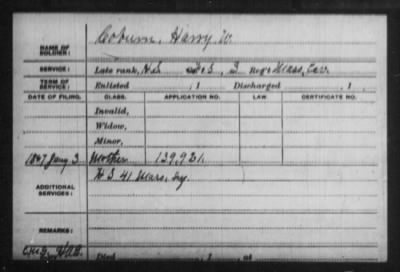 NAME OF SOLDIER: Coburn, Harry W.
SERVICE: Late rank, H.S. 3 Reg't Mass, Cav.
TERM OF SERVICE: Enlisted , 1 Discharged , 1
DATE OF FILING. CLASS. APPLICATION NO. LAW. CERTIFICATE NO.
Invalid,
Widow,
Minor,
1867 Jany 3 Mother 139,921.
ADDITIONAL SERVICES: H S 41 Mass. Inf.
REMARKS:
Died , 1 , at